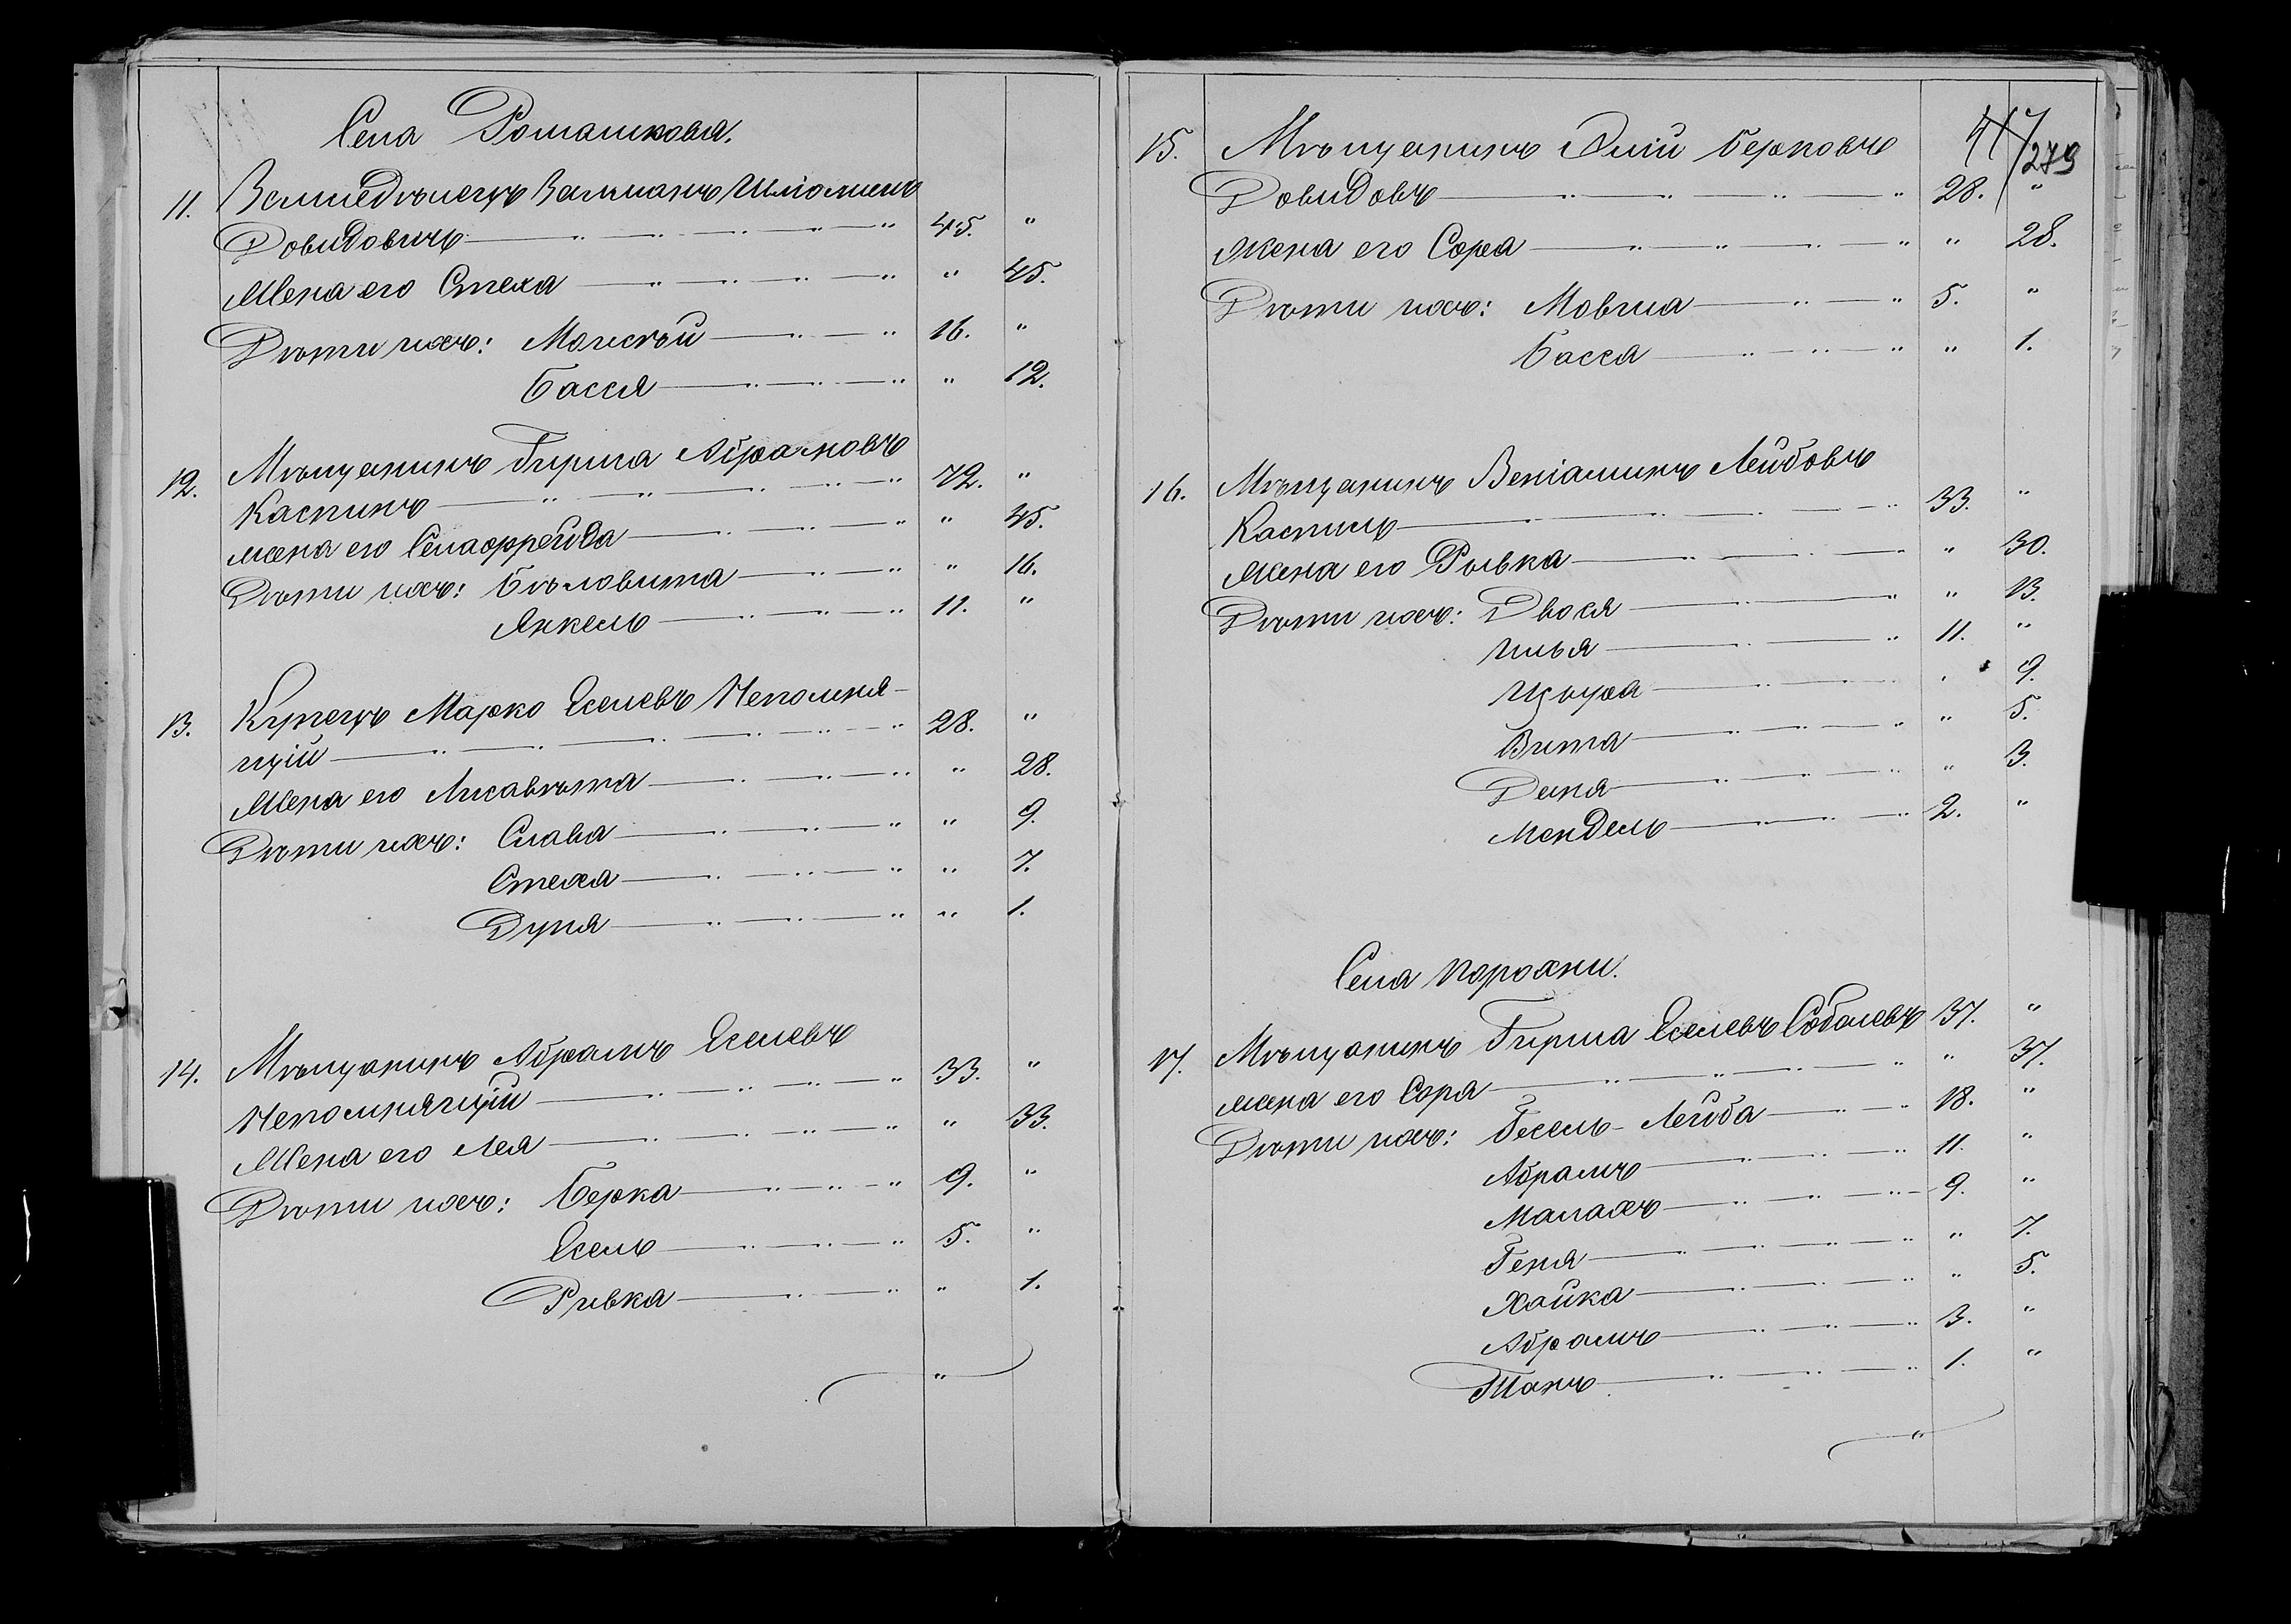 Села Ромашкова.
11. Земледѣлецъ Залманъ Шлiомовъ
Довидовичъ 45. "
Жена его Стеха " 45.
Дѣти ихъ: Моисей 16. "
Бася " 12.
12. Мѣщанинъ Гирша Абрамовъ
Каспинъ 72. "
жена его Селафрейда " 45.
Дѣти ихъ: Бѣловита " 16.
Янкель 11. "
13. Купецъ Марко Еселевъ Непомня-
щій 28. "
Жена его Лисавѣта " 28.
Дѣти ихъ: Слава " 9.
Стеха " 7.
Дуня " 1.
14. Мѣщанинъ Абрамъ Еселевъ
Непомнящій 33. "
Жена его Лея " 33.
Дѣти ихъ: Берка 9. "
Есель 5. "
Ривка " 1.
417
279
15. Мѣщанинъ Элій Берковъ
Довидовъ 28. "
Жена его Сора " 28.
Дѣти ихъ: Мовша 5. "
Басса " 1.
16. Мѣщанинъ Веніаминъ Лейбовъ
Каспинъ 33. "
Жена его Рывка " 30.
Дѣти ихъ: Двося " 13.
Илья 11. "
Цыра " 9.
Вита " 5.
Деня " 3.
Мендель 2. "
Села Порохни.
17. Мѣщанинъ Гирша Еселевъ Соболевъ 37. "
жена его Сора " 37.
Дѣти ихъ: Гесель-Лейба 18. "
Абрамъ 11. "
Малахъ 9. "
Геня " 7.
Хайка " 5.
Абрамъ 3. "
Танъ 1. "